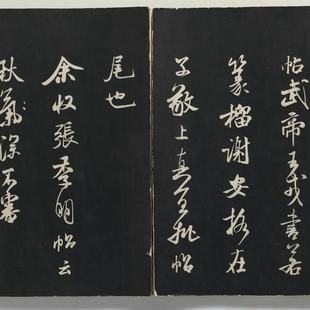 帖武帝王戎書若
篆籀謝安格在
子敬上真宜批帖
尾也
余收張季明帖云
秋氣深不審